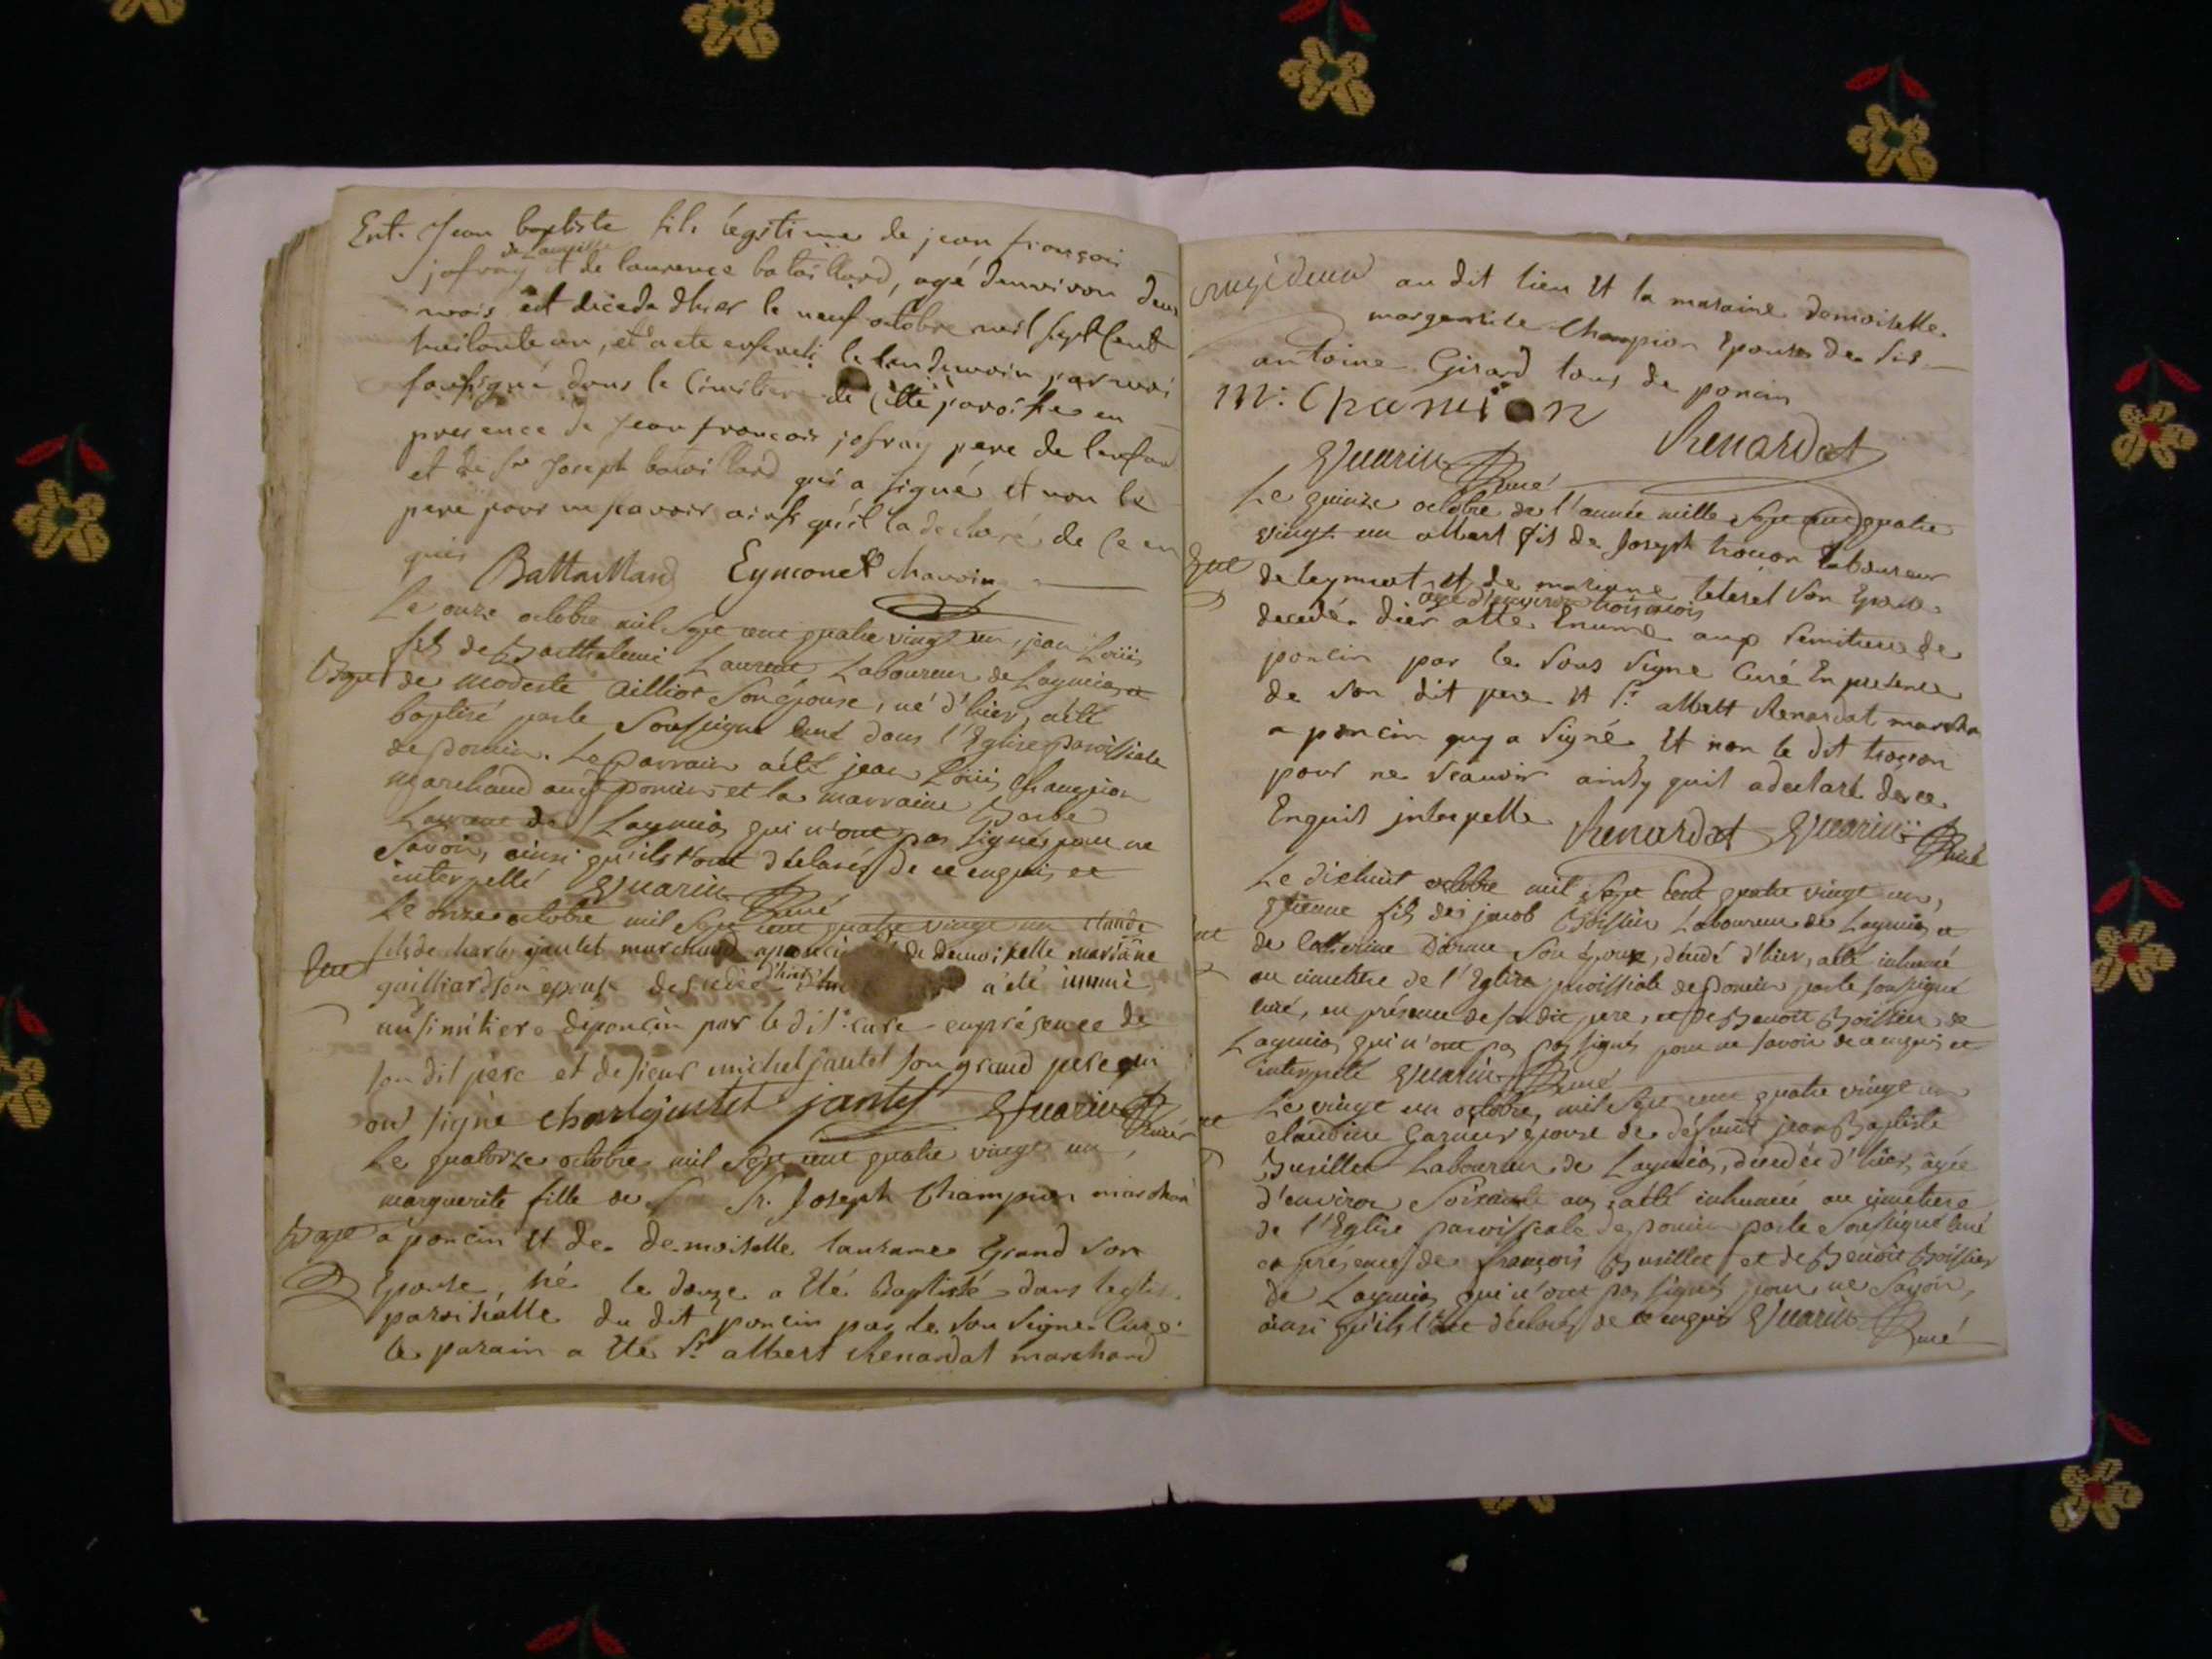 Ent. Jean baptiste fils legitime de jean françois
jofray de Laymia et de laurence bataillard, agé denviron deux
mois est decede dhier le neuf octobre mil sept cent
huitante un, et a ete enseveli le lendemain par moi
soussigné dans le Cimitiere de cette paroisse en
presence de Jean françois jofray pere de lenfan
et de sr Joseph bataillard qui a signé et non le
pere pour ne savoir ainsi qu'il la declaré de ce en
quis Battaillard Eymonet
Le onze octobre mil sept cent quatre vingt un, jean Loüis
fils de Barthelemi Laurent Laboureur de Laymia, et
Bapt de modeste Aillior Son épouse, né d'hier, a été
baptisé par le Soussigné curé dans l'Eglise paroissiale
de poncin. Le parrain a été jean Loüis Champion
marchand audt poncin et la marraine Barbe
Laurent de Laymia, qui n'ont pas signés pour ne
savoir, ainsi qu'ils l'ont déclarés de ce enquis et
interpellé Guarin Curé
Le onze octobre mil sept cent quatre vingt un claude
fils de charles jantet marchand a poncin et de demoiselle mariane
Ent gailliard son epouse desedé d'hier a été inumé
au simitiere de poncin par le dit sr curé en présence de
son dit père et de sieur michel jantet son grand pere qui
ont signé charle jantet jantet Guarin Curé
Le quatorze octobre mil sept cent quatre vingt un,
marguerite fille de Sr. Joseph Champion marchand
Bapt a poncin et de demoiselle lausanne Grand son
Epouse, né le douze a Eté Baptisé dans leglise
paroisialle du dit poncin par le sou signe Curé
le parain a Ete Sr albert Renardat marchand
au dit lieu et la maraine demoiselle
marguerite Champion Epouse de sir
antoine Girard tous de poncin
M: Chanpion Renardat
Guarin Curé
Le quinze octobre de l'année mille sept cent quatre
vingt un albert fils de Joseph trocon laboureur
Ent de leymiat et de mariane teteret son Epouse
agé d'environ trois mois
decedé dier atte Inumé aux semitiere de
poncin par le sous signe Curé En presence
de son dit pere et Sr albert Renardat marchan
a poncin quy a signé et non le dit trocon
pour ne scauoir ainsy quil a declaré de ce
Enquis interpelle Renardat Guarin Curé
Le dixhuit octobre mil sept cent quatre vingt un,
Etienne fils de jacob Boissier Laboureur de Laymia et
de Catherine Darme son épouse, décédé d'hier, a été inhumé
au cimetiere de l'Eglise paroissiale de poncin par le soussigné
curé, en présence de sondit pere, et de Benoit Boissier de
Laymia, qui n'ont pas signés pour ne savoir de ce enquis et
interpellé Guarin Curé
Le vingt un octobre, mil sept cent quatre vingt un
claudine Garnier épouse de défunt jean Baptiste
Busillet Laboureur de Laymia, décédée d'hier, âgée
d'environ soixante ans, a été inhumée au cimetiere
de l'Eglise paroissiale de poncin par le soussigné curé
en présence de françois Busillet et de Benoit Boissier
de Laymia, qui n'ont pas signés pour ne savoir,
ainsi qu'ils l'ont déclarés de ce enquis Guarin Curé